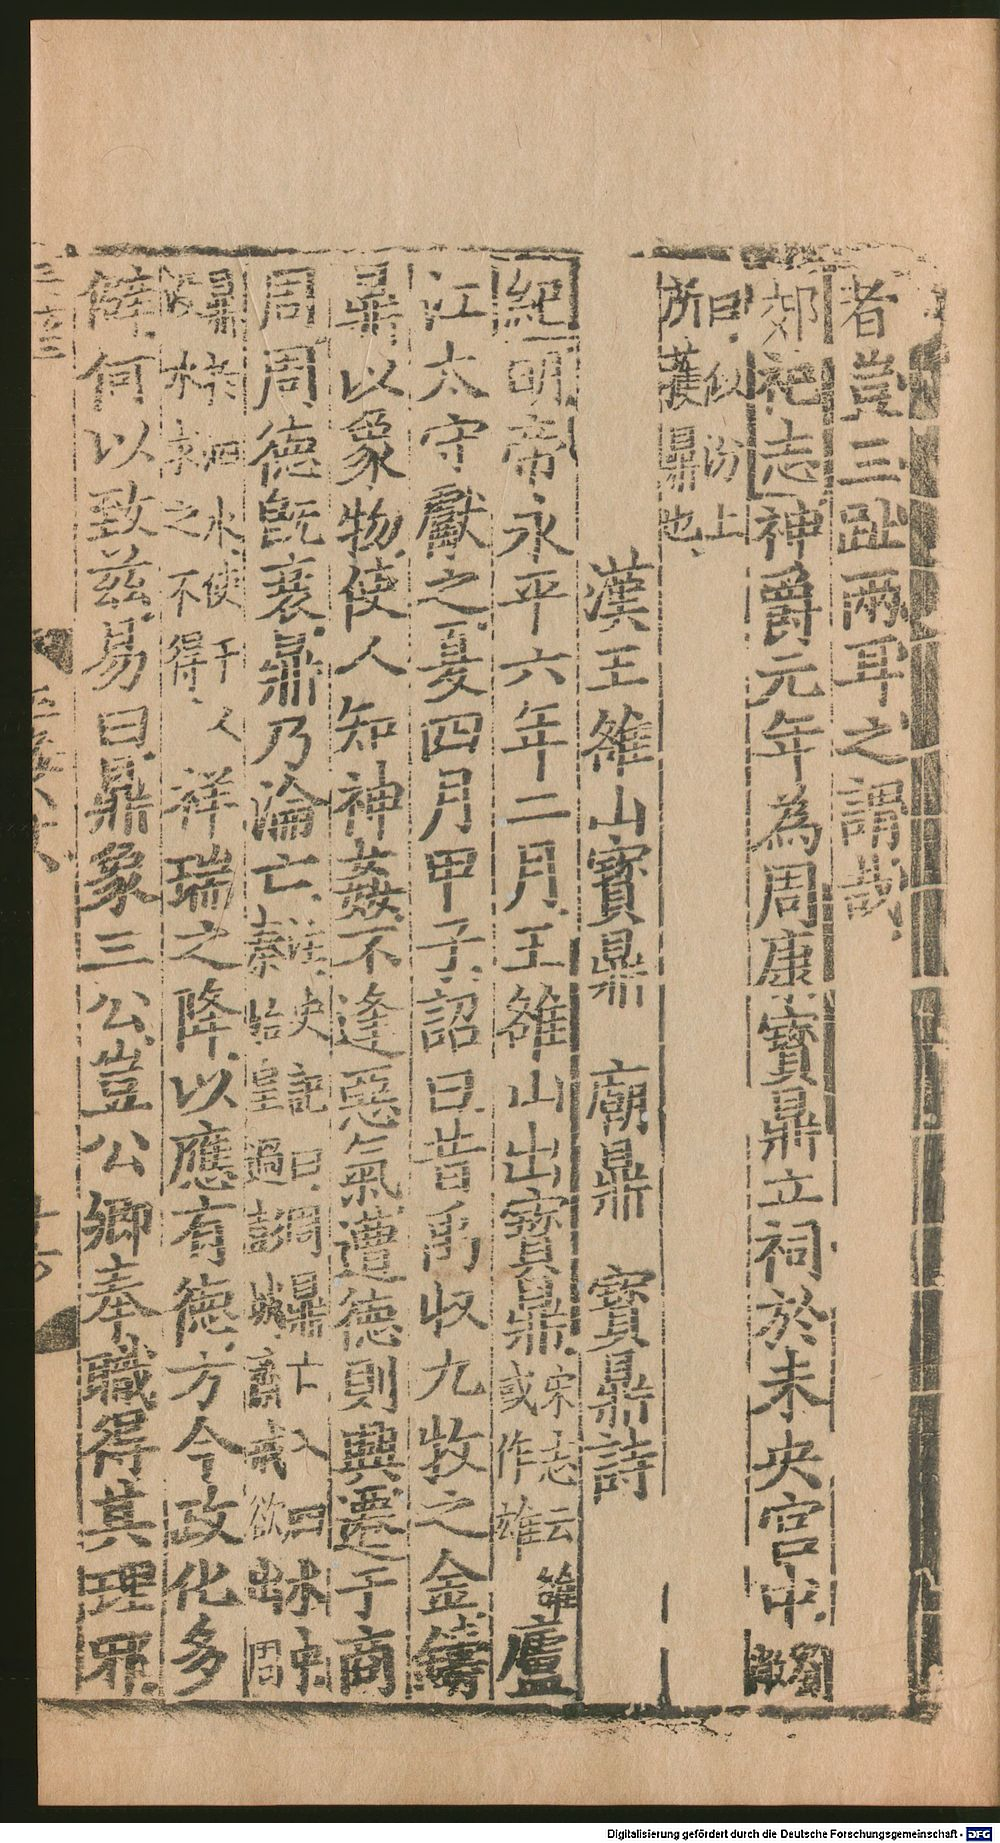 者豈三趾兩耳之謂哉
郊祀志神爵元年為周康寶鼎立祠於未央宮中
曰似汾上
所獲鼎也
漢王雒山寶鼎 廟鼎 寶鼎詩
紀明帝永平六年二月王雒山出寶鼎宋志云雒或作雄廬
江太守獻之夏四月甲子詔曰昔禹收九牧之金鑄
鼎以象物使人知神姦不逢惡氣遭德則興遷于商
周周德既衰鼎乃淪亡注史記曰周鼎亡入曰泗水秦始皇過彭城齋戒欲出周
鼎泗水使千人沒水求之不得祥瑞之降以應有德方今政化多
僻何以致茲易曰鼎象三公豈公卿奉職得其理邪
Digitalisierung gefördert durch die Deutsche Forschungsgemeinschaft - DFG